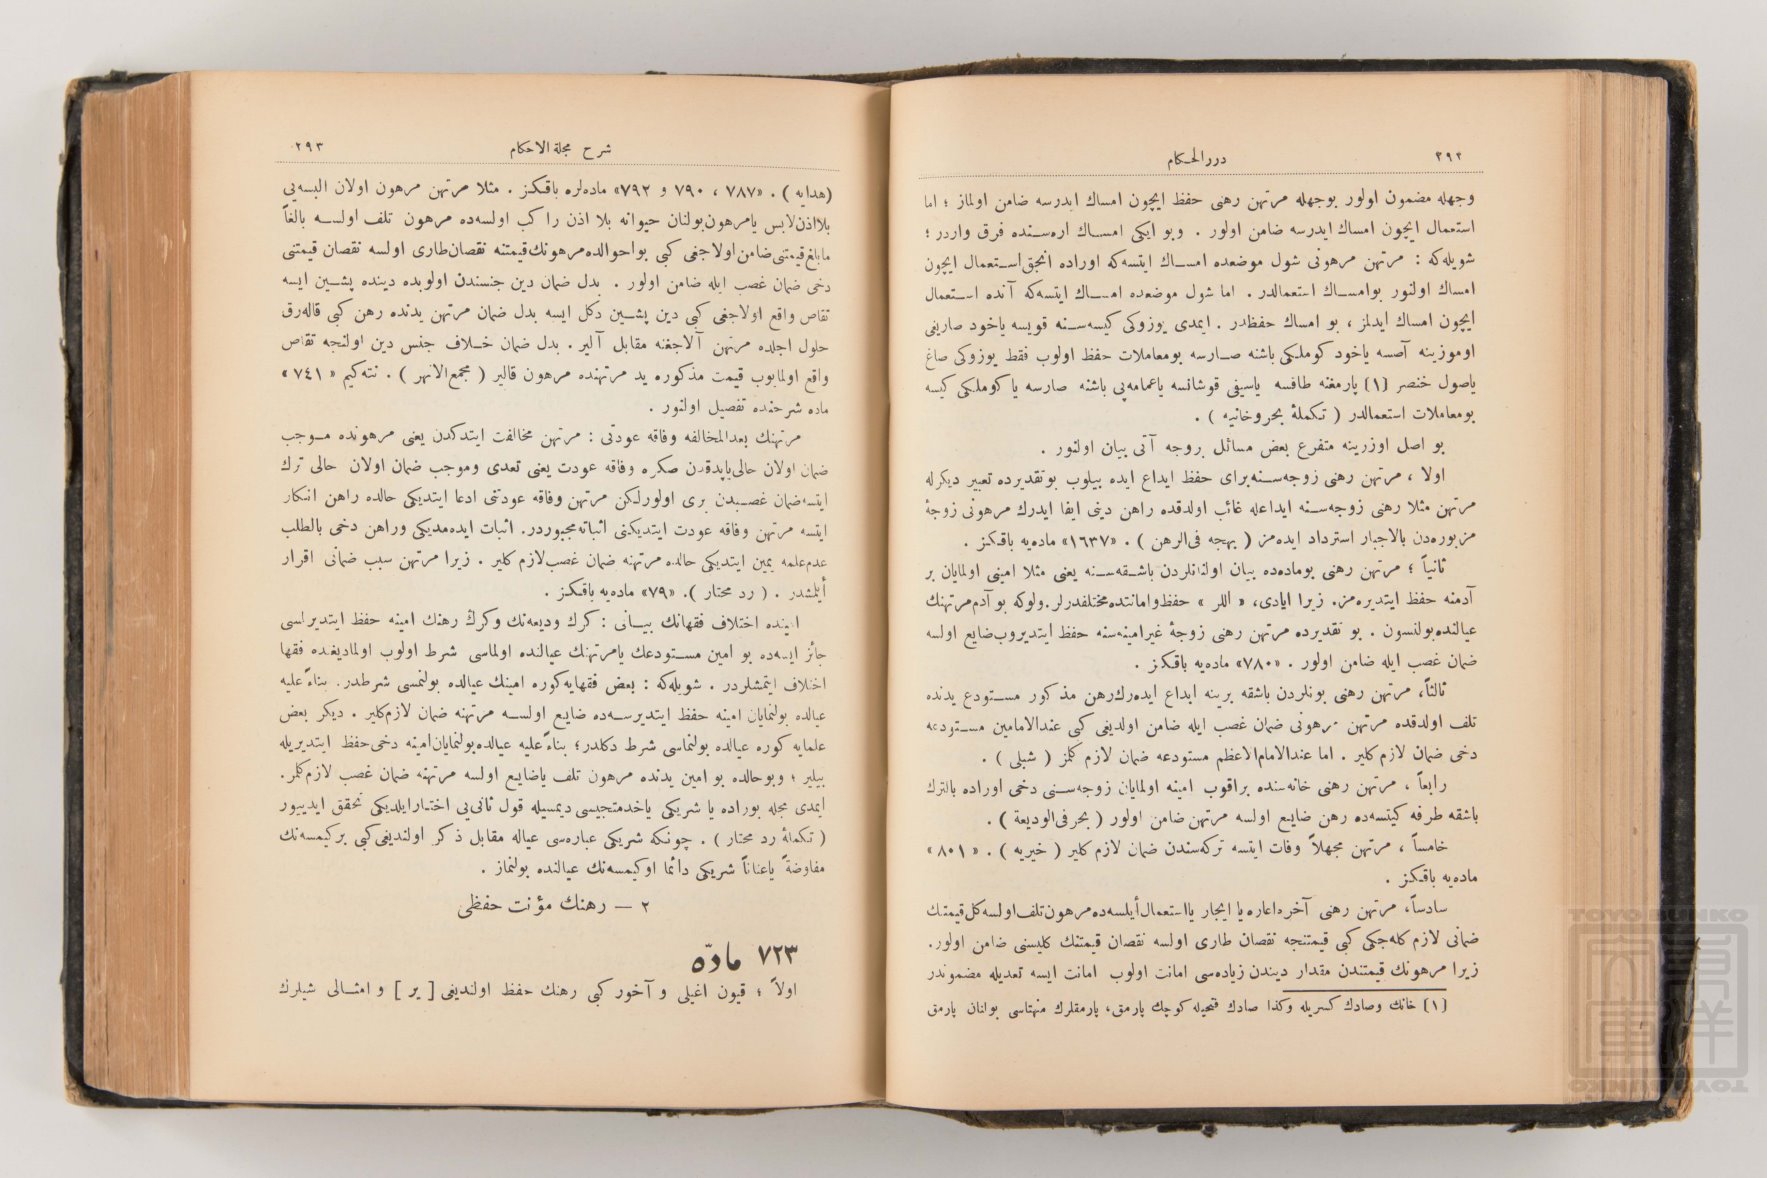 ٢٩٢
دررالحكام
وجهله مضمون اولور بوجهله مرتهن رهنى حفظ ايچون امساك ايدرسه ضامن اولماز ؛ اما
استعمال ايچون امساك ايدرسه ضامن اولور . وبو ايكى امساك اره‌سنده فرق واردر ؛
شويله‌كه : مرتهن مرهونى شول موضعده امساك ايتسه‌كه اوراده انجق استعمال ايچون
امساك اولنور بوامساك استعمالدر . اما شول موضعده امساك ايتسه‌كه آنده استعمال
ايچون امساك ايدلمز ، بو امساك حفظدر . ايمدى يوزوكى كيسه‌سنه قويسه ياخود صاريغى
اوموزينه آصسه ياخود كوملكى باشنه صارسه بومعاملات حفظ اولوب فقط يوزوكى صاغ
ياصول خنصر [١] پارمغنه طاقسه ياسيفى قوشانسه ياعمامه‌يى باشنه صارسه يا كوملكى كيسه
بومعاملات استعمالدر ( تكملۀ بحر وخانيه ) .
بو اصل اوزرينه متفرع بعض مسائل بروجه آتى بيان اولنور .
اولا ، مرتهن رهنى زوجه‌سنه براى حفظ ايداع ايده بيلوب بوتقديرده تعبير ديكرله
مرتهن مثلا رهنى زوجه‌سنه ايداعله غائب اولدقده راهن دينى ايفا ايدرك مرهونى زوجۀ
مزبوره‌دن بالاجبار استرداد ايده‌مز ( بهجه فى‌الرهن ) . «١٦٣٧» ماده‌يه باقكز .
ثانياً ؛ مرتهن رهنى بوماده‌ده بيان اولنانلردن باشقه‌سنه يعنى مثلا امينى اولمايان بر
آدمنه حفظ ايتديره‌مز. زيرا ايادى، « اللر » حفظ‌وامانتده‌مختلفدرلر.ولوكه بو آدم‌مرتهنك
عيالنده‌بولنسون . بو تقديرده مرتهن رهنى زوجۀ غيرامينه‌سنه حفظ ايتديروب‌ضايع اولسه
ضمان غصب ايله ضامن اولور . «٧٨٠» ماده‌يه باقكز .
ثالثاً، مرتهن رهنى بونلردن باشقه برينه ايداع ايده‌رك‌رهن مذكور مستودع يدنده
تلف اولدقده مرتهن مرهونى ضمان غصب ايله ضامن اولديغى كبى عندالامامين مستودعه
دخى ضمان لازم كلير . اما عندالامام‌الاعظم مستودعه ضمان لازم كلمز ( شبلى ) .
رابعاً ، مرتهن رهنى خانه‌سنده براقوب امينه اولمايان زوجه‌سنى دخى اوراده بالترك
باشقه طرفه كيتسه‌ده رهن ضايع اولسه مرتهن ضامن اولور ( بحر فى‌الوديعة ) .
خامساً ، مرتهن مجهلاً وفات ايتسه تركه‌سندن ضمان لازم كلير ( خيريه ) . « ٨٠١ »
ماده‌يه باقكز .
سادساً، مرتهن رهنى آخره‌اعاره يا ايجار يااستعمال‌أيلسه‌ده مرهون‌تلف‌اولسه كل‌قيمتنك
ضمانى لازم كله‌جكى كبى قيمتنجه نقصان طارى اولسه نقصان قيمتنك كليسنى ضامن اولور.
زيرا مرهونك قيمتندن مقدار ديندن زياده‌سى امانت اولوب امانت ايسه تعديله مضموندر
[١] خانك وصادك كسريله وكذا صادك فتحيله كوچك پارمق، پارمقلرك منتهاسى بولنان پارمق
٢٩٣
شرح مجلة الاحكام
(هدايه ) . «٧٨٧ ، ٧٩٠ و ٧٩٢» ماده‌لره باقكز . مثلا مرتهن مرهون اولان البسه‌يى
بلااذن‌لابس يامرهون‌بولنان حيوانه بلا اذن راكب اولسه‌ده مرهون تلف اولسه بالغاً
مابلغ‌قيمتنى‌ضامن‌اولاجغى كبى بواحوالده‌مرهونك‌قيمتنه نقصان‌طارى اولسه نقصان قيمتنى
دخى ضمان غصب ايله ضامن اولور . بدل ضمان دين جنسندن اولوبده دينده پشين ايسه
تقاص واقع اولاجغى كبى دين پشين دكل ايسه بدل ضمان مرتهن يدنده رهن كبى قاله‌رق
حلول اجلده مرتهن آلاجغنه مقابل آلير . بدل ضمان خلاف جنس دين اولنجه تقاص
واقع اولمايوب قيمت مذكوره يد مرتهنده مرهون قالير ( مجمع‌الانهر ) . نته‌كيم « ٧٤١ »
ماده شرحنده تفصيل اولنور .
مرتهنك بعدالمخالفه وفاقه عودتى : مرتهن مخالفت ايتدكدن يعنى مرهونده موجب
ضمان اولان حالى‌ياپدقدن صكره وفاقه عودت يعنى تعدى وموجب ضمان اولان حالى ترك
ايتسه‌ضمان غصبدن برى اولورلكن مرتهن وفاقه عودتنى ادعا ايتديكى حالده راهن انكار
ايتسه مرتهن وفاقه عودت ايتديكنى اثباته‌مجبوردر. اثبات ايده‌مديكى وراهن دخى بالطلب
عدم‌علمه يمين ايتديكى حالده مرتهنه ضمان غصب‌لازم كلير . زيرا مرتهن سبب ضمانى اقرار
أيلمشدر . ( رد محتار ). «٧٩» ماده‌يه باقكز .
امينده اختلاف فقهانك بيانى : كرك وديعه‌نك وكرك رهنك امينه حفظ ايتديرلمسى
جائز ايسه‌ده بو امين مستودعك يامرتهنك عيالنده اولماسى شرط اولوب اولماديغنده فقها
اختلاف ايتمشلردر . شويله‌كه : بعض فقهايه‌كوره امينك عيالده بولنمسى شرطدر. بناءًعليه
عيالده بولنمايان امينه حفظ ايتديرسه‌ده ضايع اولسه مرتهنه ضمان لازم‌كلير . ديكر بعض
علمايه كوره عيالده بولنماسى شرط دكلدر؛ بناءًعليه عيالده‌بولنمايان‌امينه دخى‌حفظ ايتديريله
بيلير ؛ وبوحالده بو امين يدنده مرهون تلف ياضايع اولسه مرتهنه ضمان غصب لازم‌كلمز.
ايمدى مجله بوراده يا شريكى ياخدمتجيسى ديمسيله قول ثانى‌يى اختيارايلديكى تحقق ايدييور
( تكملۀ رد محتار ) . چونكه شريكى عباره‌سى عياله مقابل ذكر اولنديغى‌كبى بركيمسه‌نك
مفاوضةً ياعناناً شريكى دائما اوكيمسه‌نك عيالنده بولنماز .
٢ — رهنك مؤنت حفظى
٧٢٣ مادّه
اولاً ؛ قيون اغيلى و آخور كبى رهنك حفظ اولنديغى [ ير ] و امثالى شيلرك
TOYO BUNKO